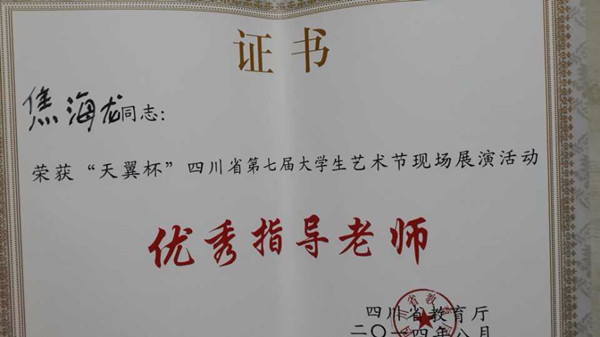 证书
焦海龙同志：
荣获“天翼杯”四川省第七届大学生艺术节现场展演活动
优秀指导老师
四川省教育厅
二〇一四年八月